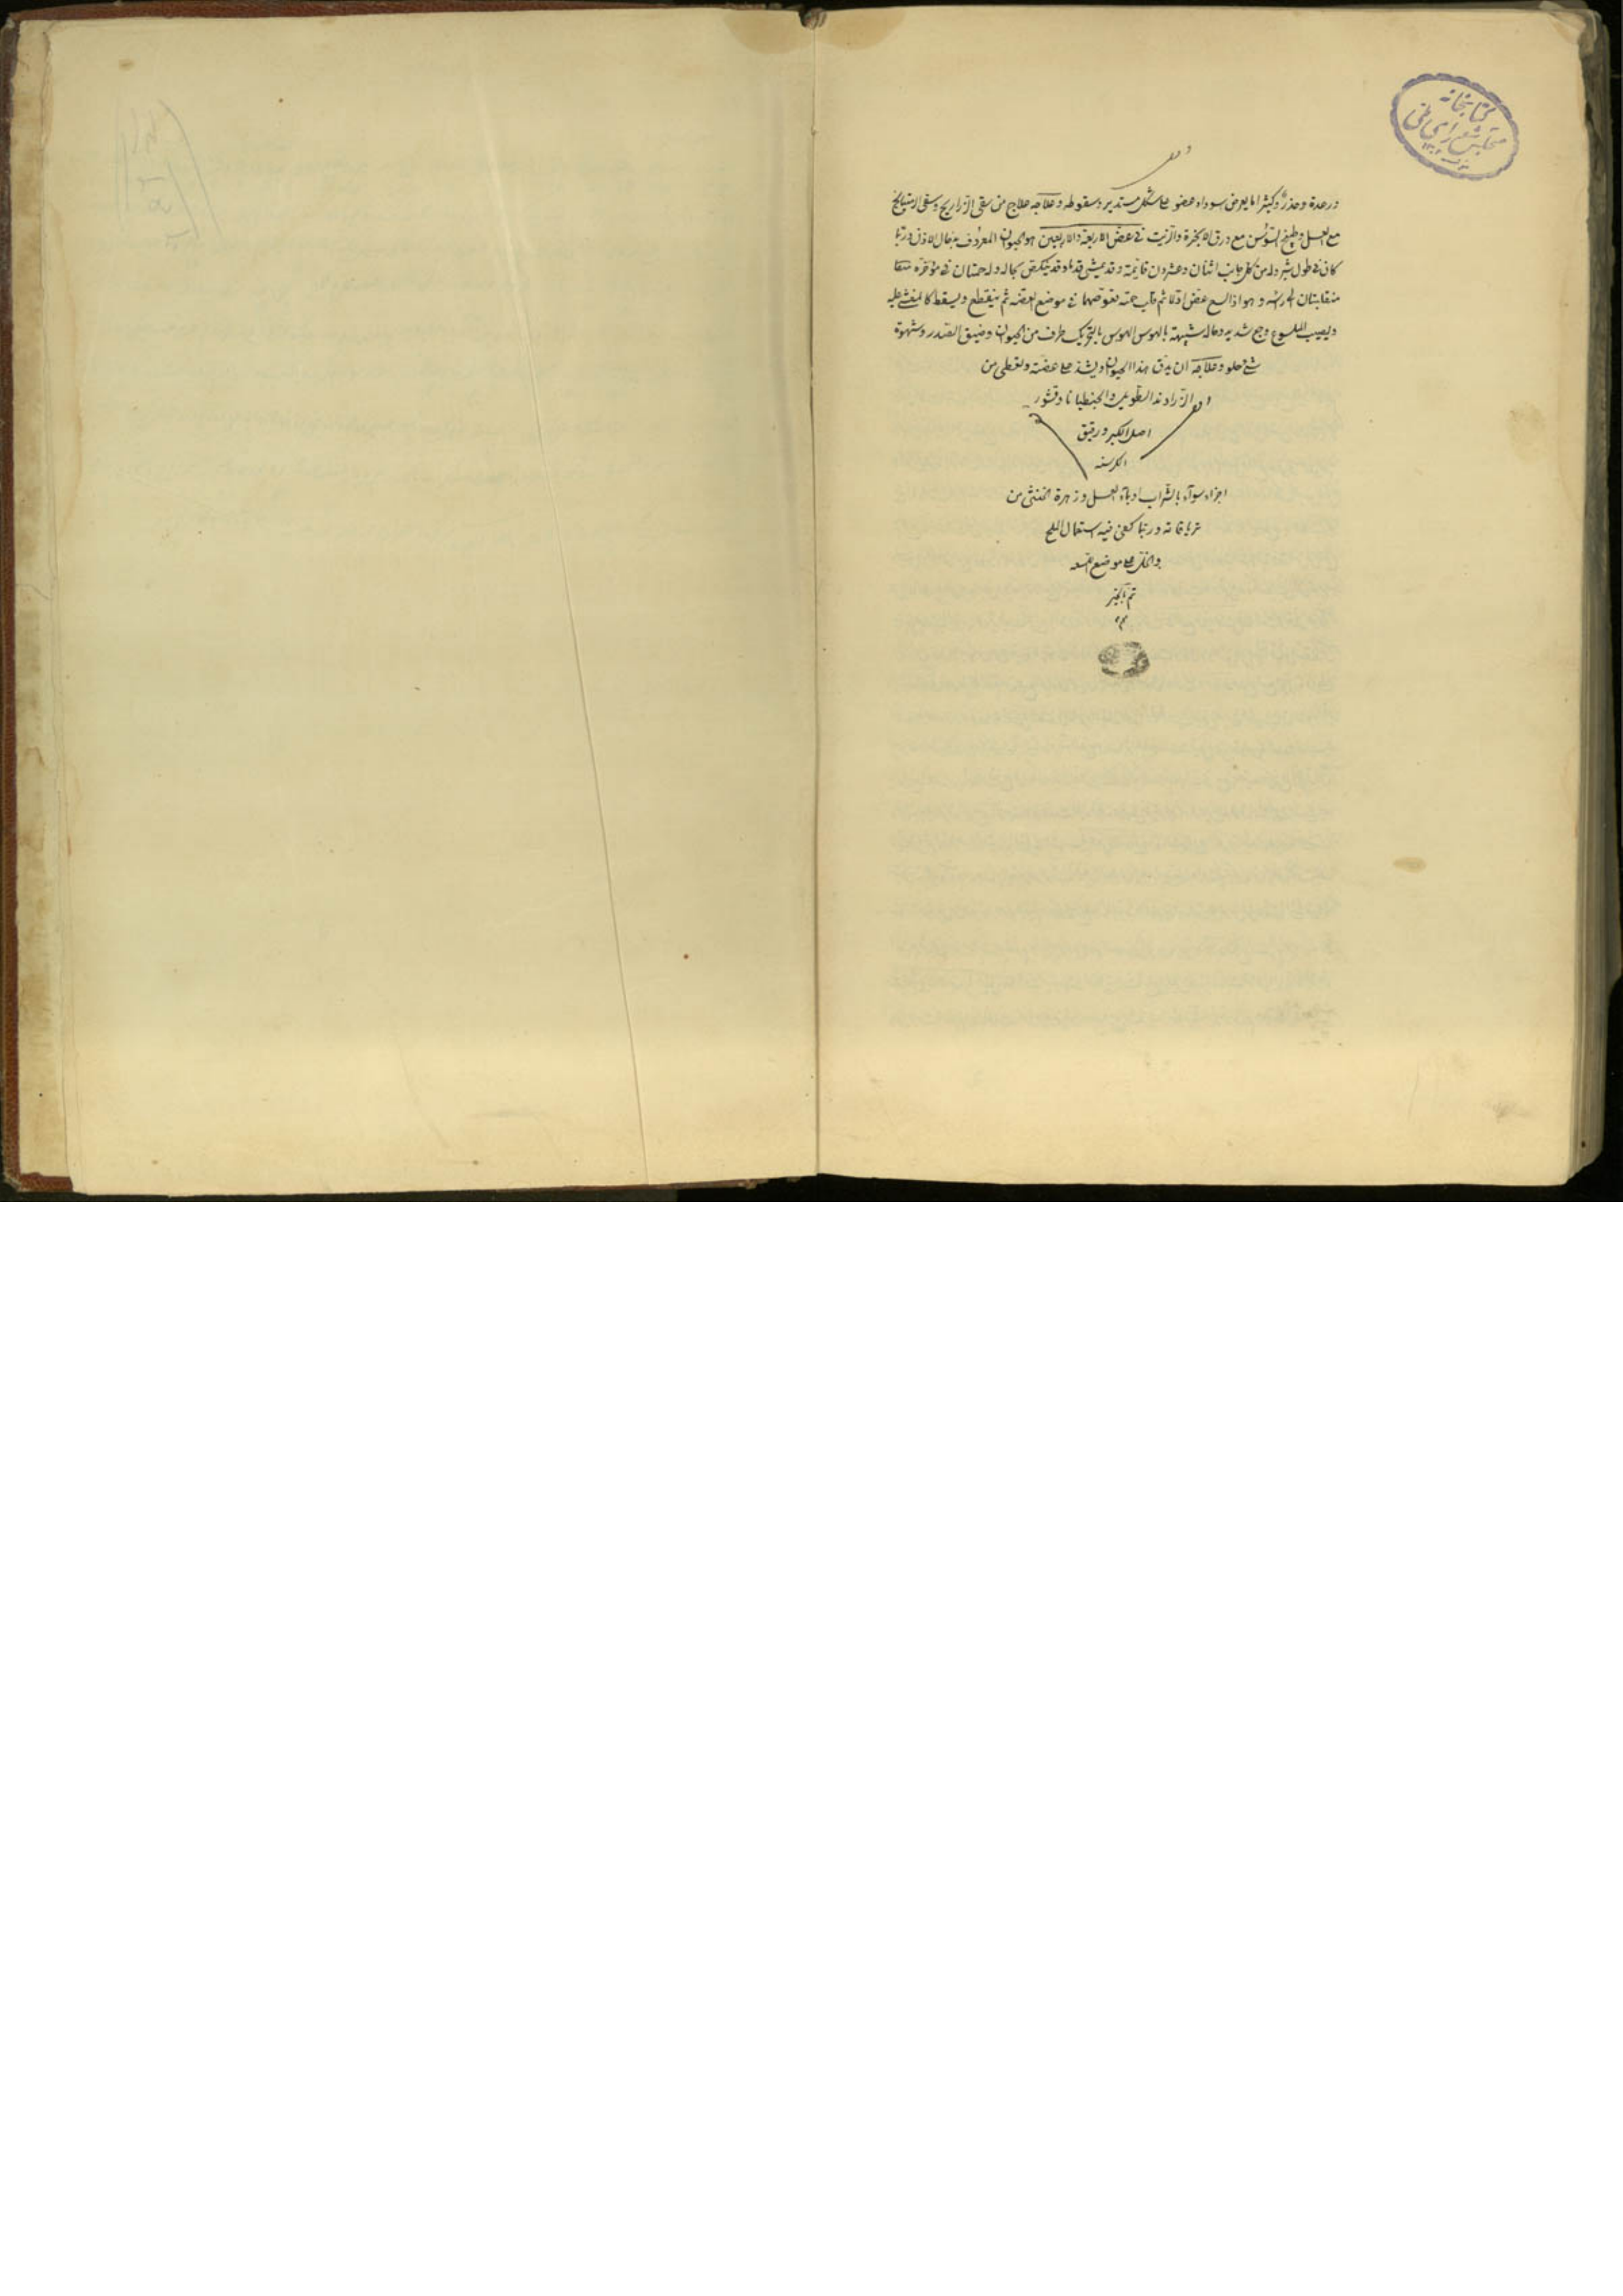 كتابخانه
مجلس شورای ملی
ورعدة وخدر وكثيرا ما يعرض سوداد عضو على شكل مستدير وسقوطه وعلاجه علاج من سقى الذراريح وسقى
مع العسل وطبيخ السوسن مع ورق الانجرة والزيت فى عض الاربعة والاربعين هو الحيوان المعروف بدخال الاذن وربما
كان فى طول شبر وله من كل جانب اثنان وعشرون قائمة وقد يمشى قدما وقد ينكص بحاله وله حمتان فى مؤخره
منقلبتان الى راسه وهو اذا لسع عض اولا ثم قلب حمته فغوصهما فى موضع العضة ثم ينقطع ويسقط كالمغشى عليه
ويصيب الملسوع وجع شديد وحالة شبيهة بالهوس الهوس بالتحريك طرف من الجنون وضيق الصدر وشهوة
شئ حلو وعلاجه ان يدق هذا الحيوان ويشد على عضته ويعطى من
الزراوند الطويل والجنطيانا وقشور
اصل الكبر ودقيق
الكرسنه
اجزاء سوآء بالشراب او بمآء العسل وزهرة الخنثى من
ترياقاته وربما كفى فيه استعمال الملح
والخل على موضع لسعه
تم بالخير